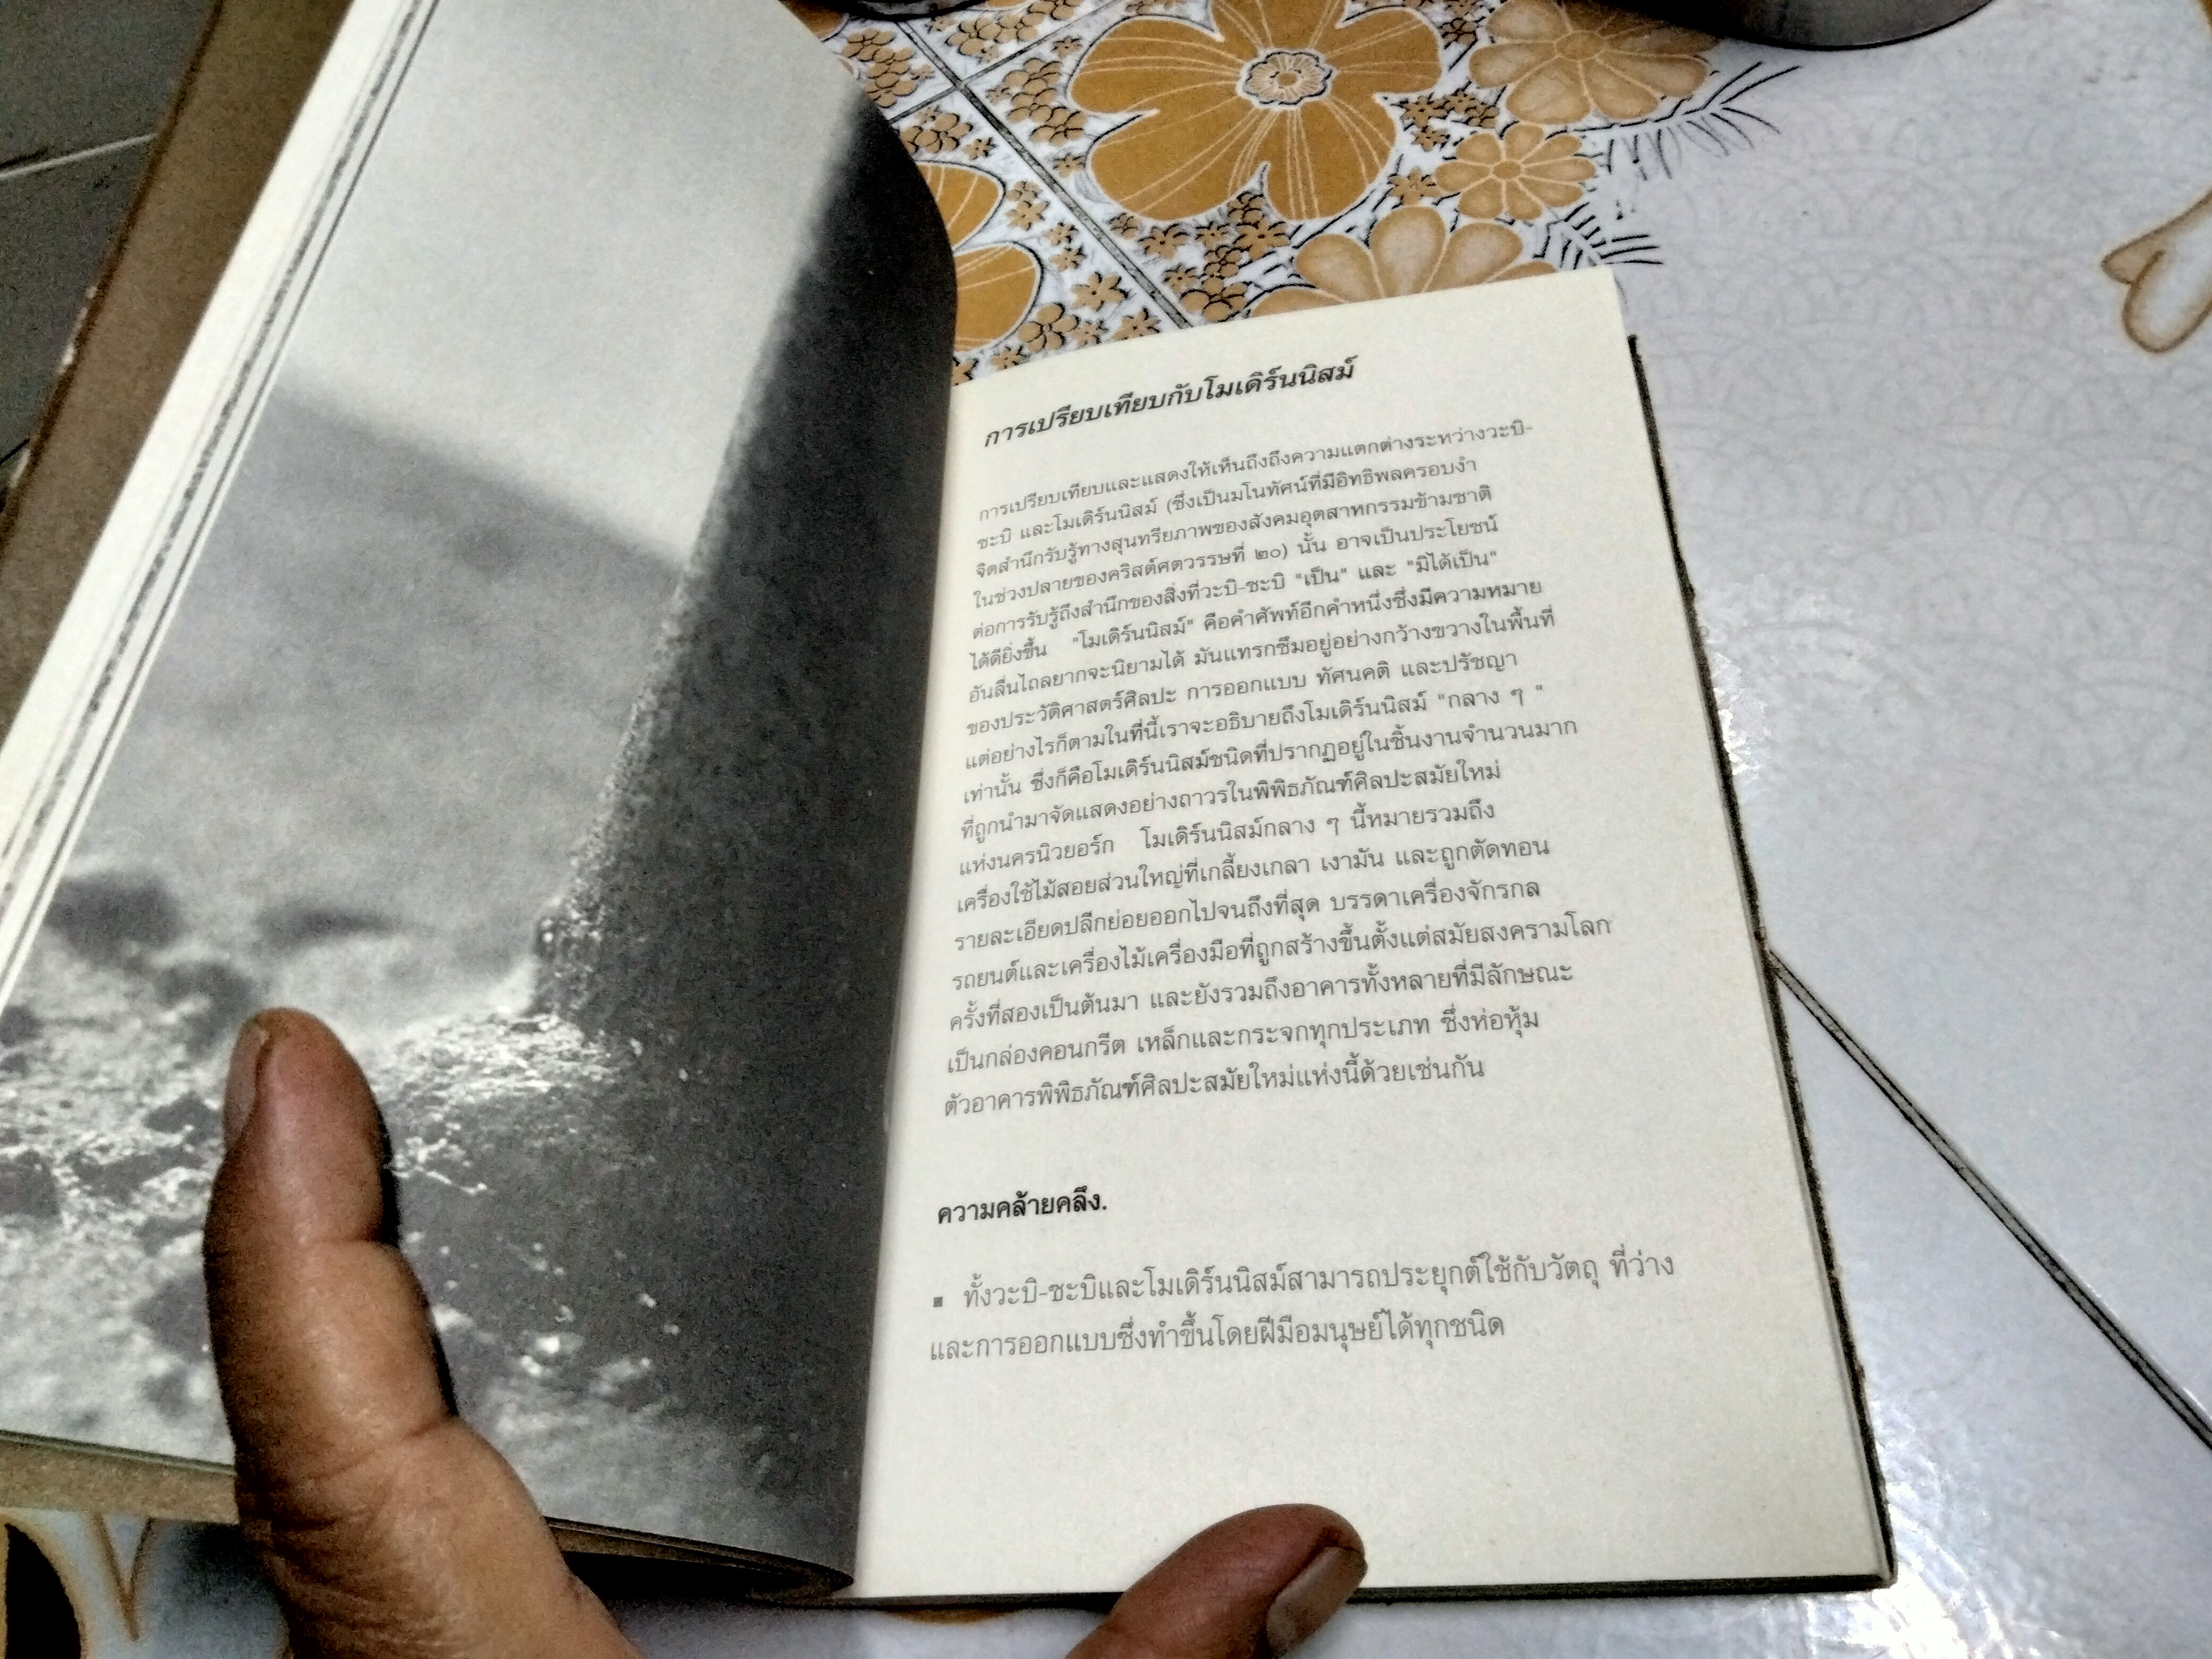 การเปรียบเทียบกับโมเดิร์นนิสม์
การเปรียบเทียบและแสดงให้เห็นถึงถึงความแตกต่างระหว่างวะบิ-
ซะบิ และโมเดิร์นนิสม์ (ซึ่งเป็นมโนทัศน์ที่มีอิทธิพลครอบงำ
จิตสำนึกรับรู้ทางสุนทรียภาพของสังคมอุตสาหกรรมข้ามชาติ
ในช่วงปลายของคริสต์ศตวรรษที่ ๒๐) นั้น อาจเป็นประโยชน์
ต่อการรับรู้ถึงสำนึกของสิ่งที่วะบิ-ซะบิ "เป็น" และ "มิได้เป็น"
ได้ดียิ่งขึ้น "โมเดิร์นนิสม์" คือคำศัพท์อีกคำหนึ่งซึ่งมีความหมาย
อันลื่นไถลยากจะนิยามได้ มันแทรกซึมอยู่อย่างกว้างขวางในพื้นที่
ของประวัติศาสตร์ศิลปะ การออกแบบ ทัศนคติ และปรัชญา
แต่อย่างไรก็ตามในที่นี้เราจะอธิบายถึงโมเดิร์นนิสม์ "กลาง ๆ "
เท่านั้น ซึ่งก็คือโมเดิร์นนิสม์ชนิดที่ปรากฏอยู่ในชิ้นงานจำนวนมาก
ที่ถูกนำมาจัดแสดงอย่างถาวรในพิพิธภัณฑ์ศิลปะสมัยใหม่
แห่งนครนิวยอร์ก โมเดิร์นนิสม์กลาง ๆ นี้หมายรวมถึง
เครื่องใช้ไม้สอยส่วนใหญ่ที่เกลี้ยงเกลา เงามัน และถูกตัดทอน
รายละเอียดปลีกย่อยออกไปจนถึงที่สุด บรรดาเครื่องจักรกล
รถยนต์และเครื่องไม้เครื่องมือที่ถูกสร้างขึ้นตั้งแต่สมัยสงครามโลก
ครั้งที่สองเป็นต้นมา และยังรวมถึงอาคารทั้งหลายที่มีลักษณะ
เป็นกล่องคอนกรีต เหล็กและกระจกทุกประเภท ซึ่งห่อหุ้ม
ตัวอาคารพิพิธภัณฑ์ศิลปะสมัยใหม่แห่งนี้ด้วยเช่นกัน
ความคล้ายคลึง.
▪ ทั้งวะบิ-ซะบิและโมเดิร์นนิสม์สามารถประยุกต์ใช้กับวัตถุ ที่ว่าง
และการออกแบบซึ่งทำขึ้นโดยฝีมือมนุษย์ได้ทุกชนิด